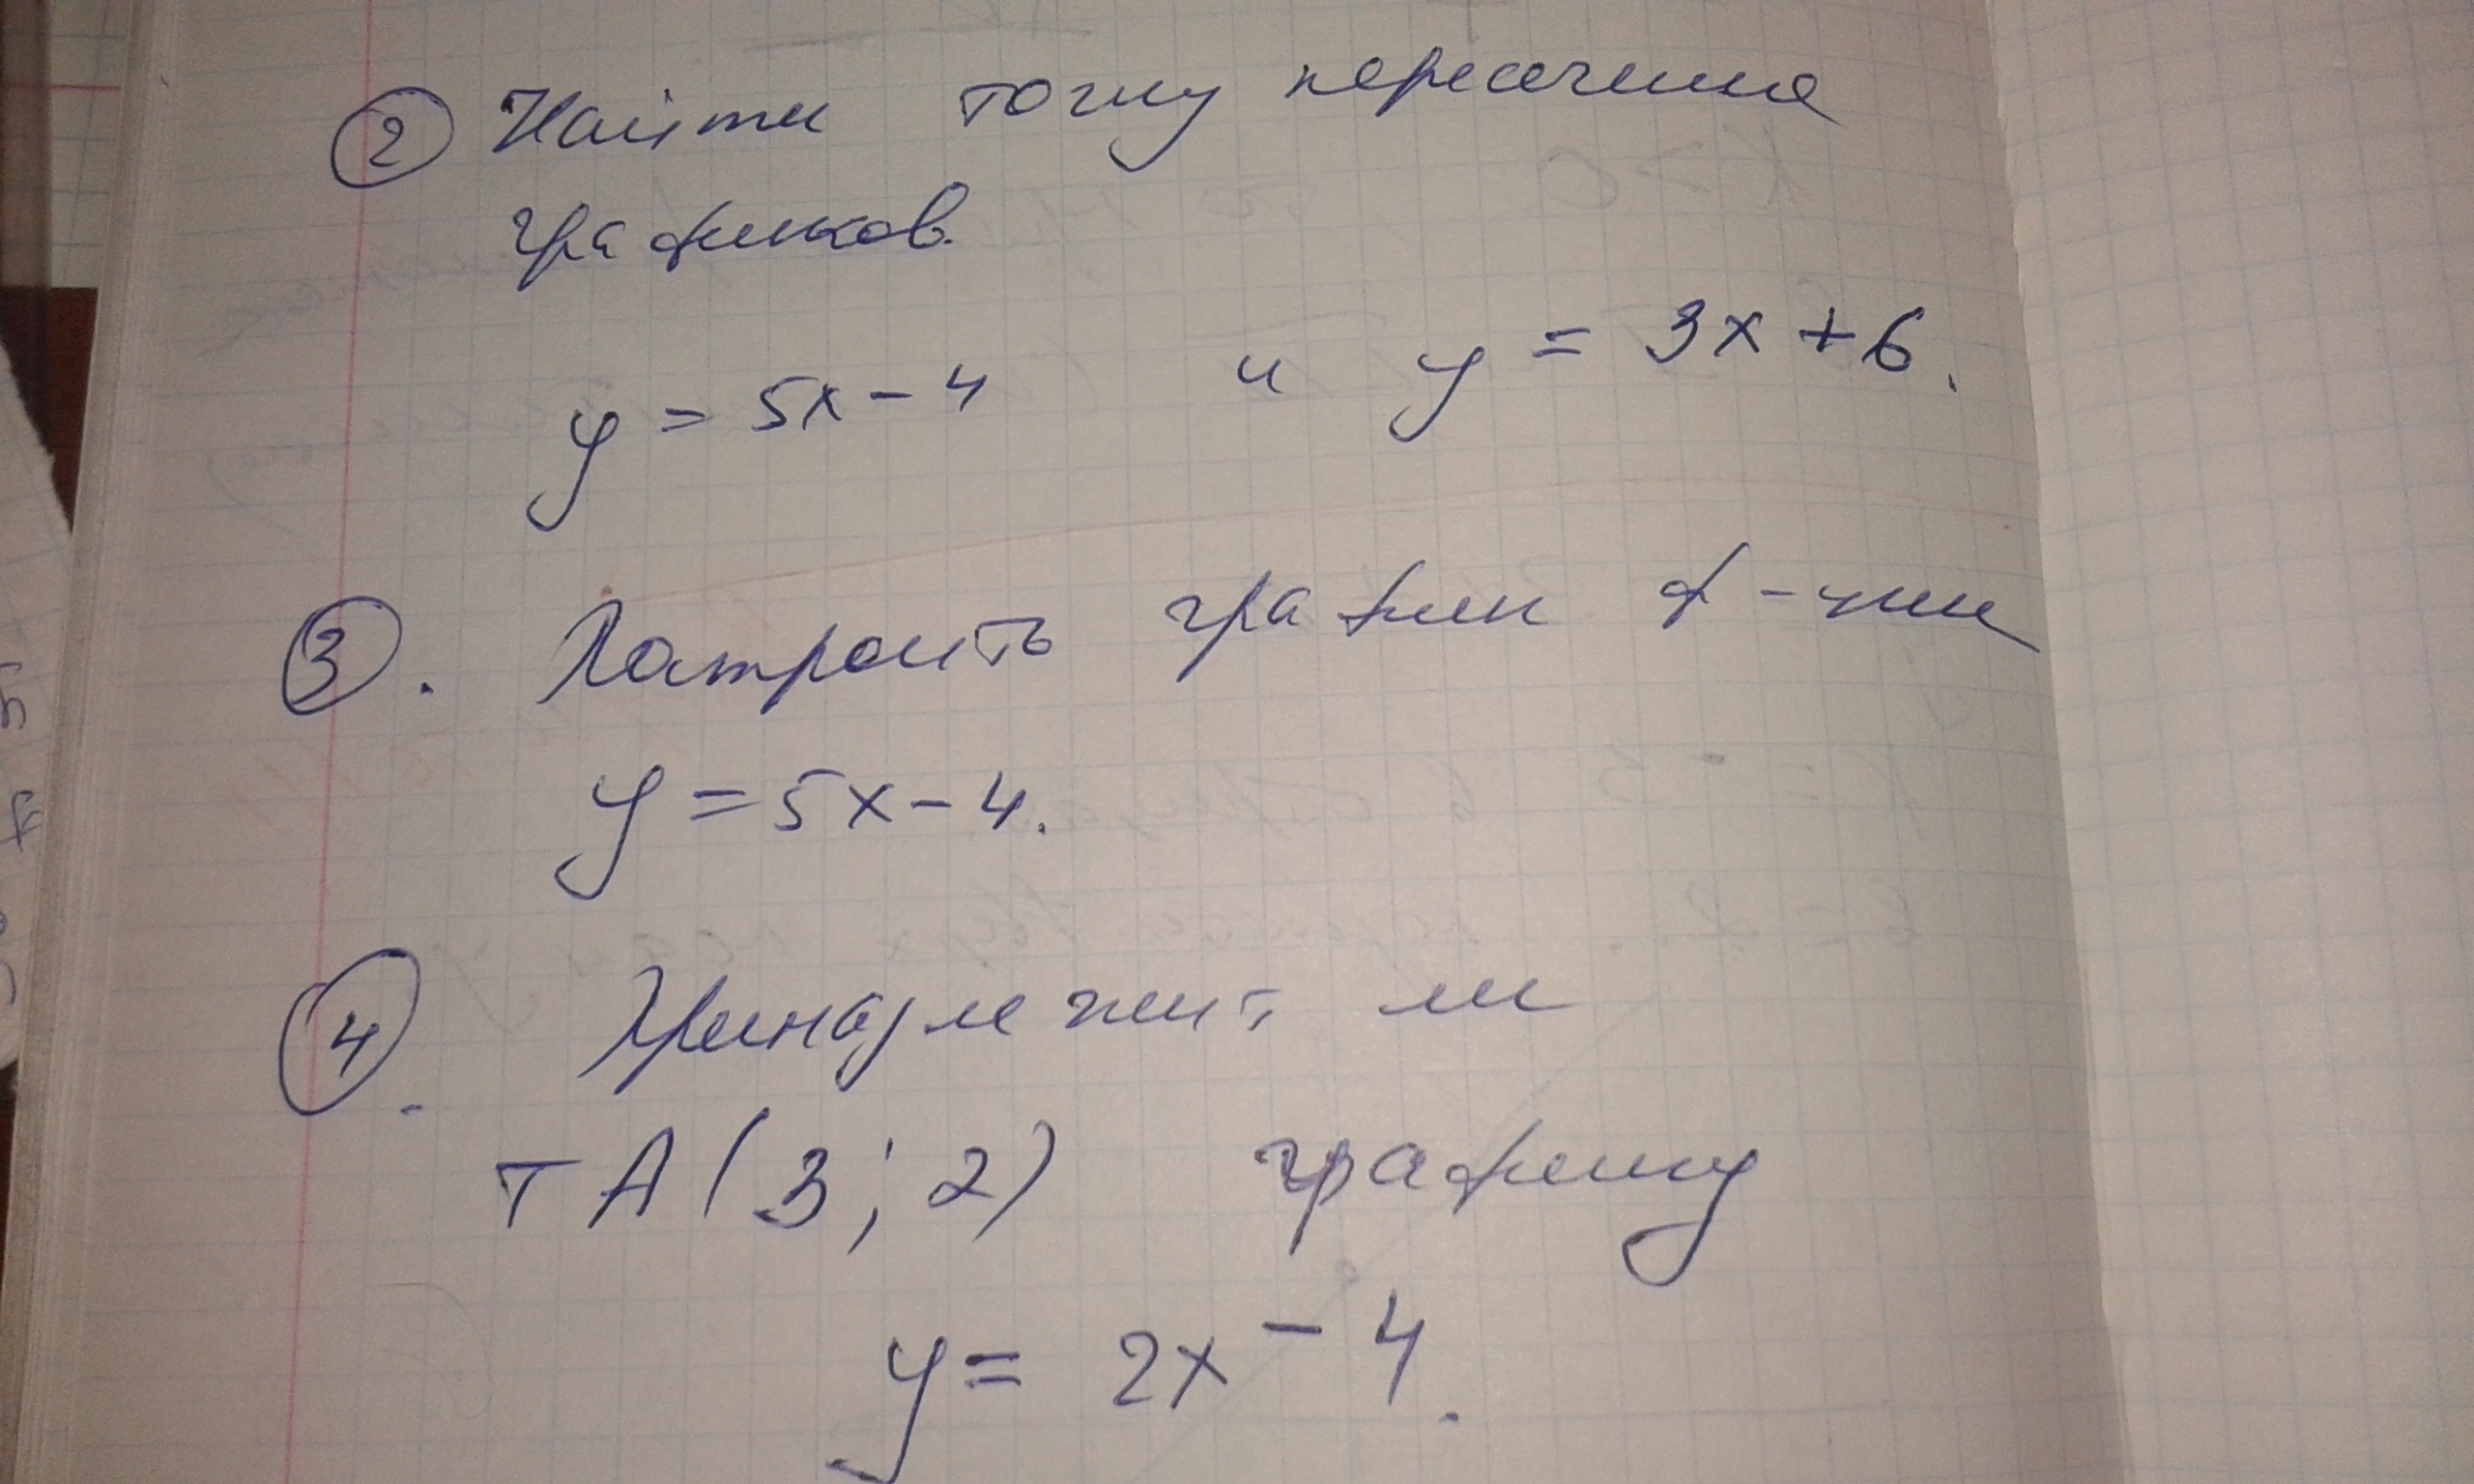 2 Найти точку пересечения
графиков.
y = 5x - 4 и y = 3x + 6.
3. Построить график ф-ции
y = 5x - 4.
4. Принадлежит ли
т A(3; 2) графику
y = 2x - 4.